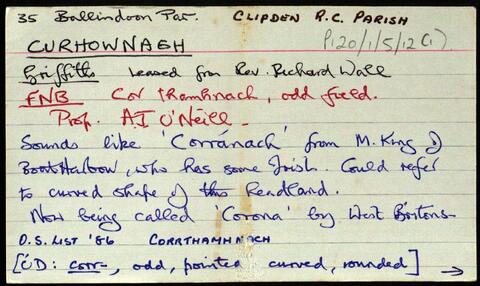 35 Ballindoon Par. CLIFDEN R.C. PARISH
P120/1/5/12(1)
CURHOWNAGH
Griffiths leased from Rev. Richard Wall
FNB Cor thamhnach, odd field.
Prof. A.I O'Neill.
Sounds like 'Corránach' from M. King of
Boat Harbour, who has some Irish. Could refer
to curved shape of the headland.
Now being called 'Corona' by West Britons
O.S. LIST '86 CORRTHAMHNACH
[ÓD: corr-, odd, pointed curved, rounded] →